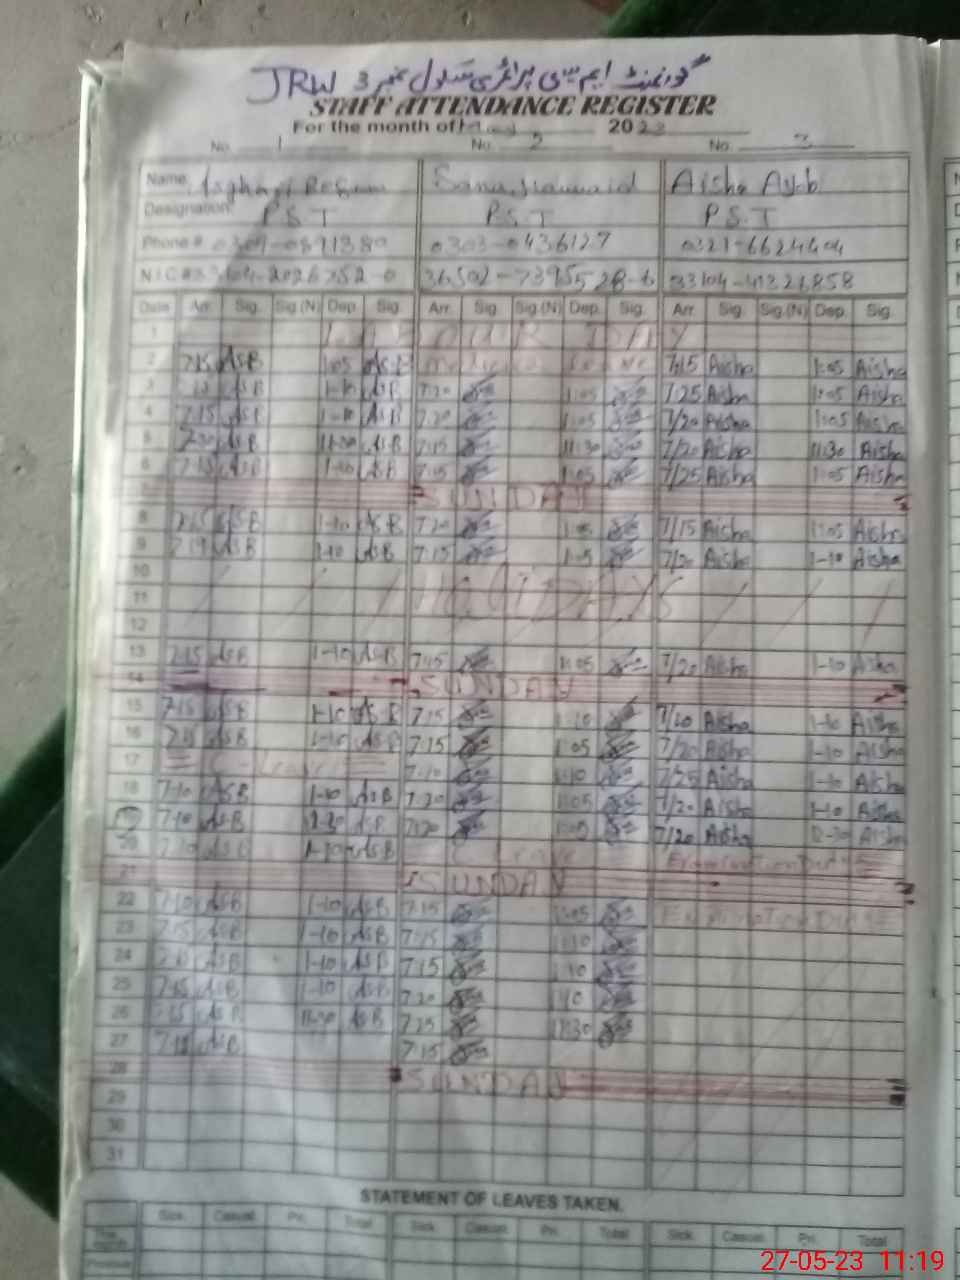 JRW 3 گورنمنٹ ایم سی پرائمری سکول نمبر
STAFF ATTENDANCE REGISTER
For the month of May 2023
No. 1 No. 2 No. 3
Name Asghari Begum Sana Aisha Ayub
Designation P.S.T P.S.T P.S.T
Phone # 0303-0436127 0321-6624404
N.I.C #
Date Arr. Sig. Sig.(N) Dep. Sig. Arr. Sig. Sig.(N) Dep. Sig. Arr. Sig. Sig.(N) Dep. Sig.
1 LABOUR DAY
2 7:15 ASB 1:05 ASB Leave 7/15 Aisha 1:05 Aisha
3 ASB 1-10 ASB 7:20 1:05 7/25 Aisha 1:05 Aisha
4 7:15 ASB 1-10 ASB 7:20 1:05 7/20 Aisha 1:05 Aisha
5 ASB 11-30 ASB 7:15 11:30 7/20 Aisha 11:30 Aisha
6 7:15 ASB 1-10 ASB 7:15 1:05 7/25 Aisha 1:05 Aisha
7 SUNDAY
8 7:15 ASB 1-10 ASB 7:20 1:05 7/15 Aisha 1:05 Aisha
9 ASB 1-10 ASB 7:15 1:05 7/20 Aisha 1-10 Aisha
10 HOLIDAYS
11
12
13 7:15 ASB 1-10 ASB 7:15 1:05 7/20 Aisha 1-10 Aisha
14 SUNDAY
15 7:15 ASB 1-10 ASB 7:15 1:10 7/10 Aisha 1-10 Aisha
16 ASB 1-10 ASB 7:15 1:05 7/20 Aisha 1-10 Aisha
17 C-Leave 7:10 1:10 7/25 Aisha 1-10 Aisha
18 7-10 ASB 1-10 ASB 7:20 1:05 7/20 Aisha 1-10 Aisha
19 7-10 ASB 12-30 ASB 7:20 7/20 Aisha 12-30 Aisha
20 ASB 1-10 ASB C Leave Examination Duty
21 SUNDAY
22 7-10 ASB 1-10 ASB 7:15 1:05 Examination Duty
23 7:15 ASB 1-10 ASB 7:15 1:10
24 ASB 1-10 ASB 7:15 1:10
25 7:15 ASB 1-10 ASB 7:20 1:10
26 7:15 ASB 11-30 ASB 7:25 11:30
27 ASB 7:15
28 SUNDAY
29
30
31
STATEMENT OF LEAVES TAKEN.
Sick. Casual. Pri. Total Sick Casual. Pri. Total Sick. Casual. Pri. Total
27-05-23 11:19